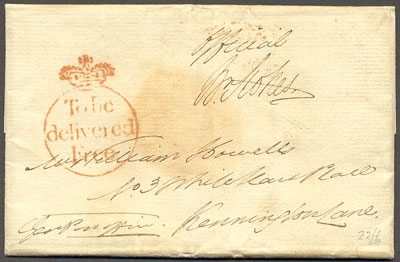 Official
To be
delivered
Free
Mr William Howells
No 3 White Hart Place
Kennington Lane.
22/6